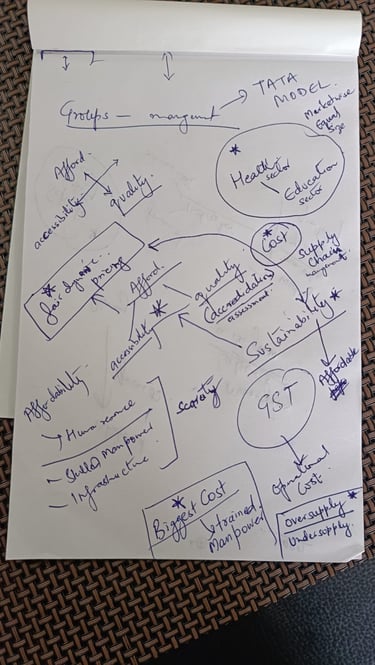 Groups - managment → TATA
MODEL.
Marketwise
Equal
Size
* Health
sector
Education
sector
Afford.
accessibility
quality.
* Cost
Supply
Chain
* fair dynamic
pricing
Afford.
quality
(accreditation)
assessment.
accessibilit *
Sustainability *
Affordable
Affordability.
→ Human resource
- Skilled Manpower
- Infrastructure.
scarcity
GST
Operational
Cost.
* Biggest Cost
→ trained
Manpower
oversupply *
Undersupply.